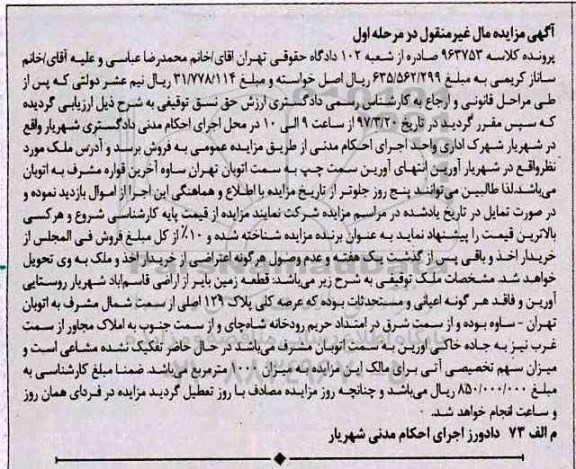 آگهی مزایده مال غیرمنقول در مرحله اول
پرونده کلاسه ۹۶۳۷۵۳ صادره از شعبه ۱۰۲ دادگاه حقوقی تهران آقای/خانم محمدرضا عباسی و علیه آقای/خانم
ساناز کریمی به مبلغ ۶۳۵/۵۶۲/۲۹۹ ریال اصل خواسته و مبلغ ۳۱/۷۷۸/۱۱۴ ریال نیم عشر دولتی که پس از
طی مراحل قانونی و ارجاع به کارشناس رسمی دادگستری ارزش حق نسق توقیفی به شرح ذیل ارزیابی گردیده
که سپس مقرر گردید در تاریخ ۹۷/۳/۲۰ از ساعت ۹ الی ۱۰ در محل اجرای احکام مدنی دادگستری شهریار واقع
در شهریار شهرک اداری واحد اجرای احکام مدنی از طریق مزایده عمومی به فروش برسد و آدرس ملک مورد
نظرواقع در شهریار آورین انتهای آورین سمت چپ به سمت اتوبان تهران ساوه آخرین قواره مشرف به اتوبان
می‌باشد.لذا طالبین می‌توانند پنج روز جلوتر از تاریخ مزایده با اطلاع و هماهنگی این اجرا از اموال بازدید نموده و
در صورت تمایل در تاریخ یادشده در مراسم مزایده شرکت نمایند مزایده از قیمت پایه کارشناسی شروع و هرکسی
بالاترین قیمت را پیشنهاد نماید به عنوان برنده مزایده شناخته شده و ۱۰٪ از کل مبلغ فروش فی المجلس از
خریدار اخذ و باقی پس از گذشت یک هفته و عدم وصول هرگونه اعتراضی از خریدار اخذ و ملک به وی تحویل
خواهد شد. مشخصات ملک توقیفی به شرح زیر می‌باشد: قطعه زمین بایر از اراضی قاسم‌آباد شهریار روستایی
آورین و فاقد هر گونه اعیانی و مستحدثات بوده که عرصه کلی پلاک ۱۳۹ اصلی از سمت شمال مشرف به اتوبان
تهران - ساوه بوده و از سمت شرق در امتداد حریم رودخانه شاه‌چای و از سمت جنوب به املاک مجاور از سمت
غرب نیز به جاده خاکی آورین به سمت اتوبان مشرف می‌باشد در حال حاضر تفکیک نشده مشاعی است و
میزان سهم تخصیصی آتی برای مالک این مزایده به میزان ۱۰۰۰ مترمربع می‌باشد. ضمنا مبلغ کارشناسی به
مبلغ ۸۵۰/۰۰۰/۰۰۰ ریال می‌باشد و چنانچه روز مزایده مصادف با روز تعطیل گردید مزایده در فردای همان روز
و ساعت انجام خواهد شد.
م الف ۷۳ دادورز اجرای احکام مدنی شهریار